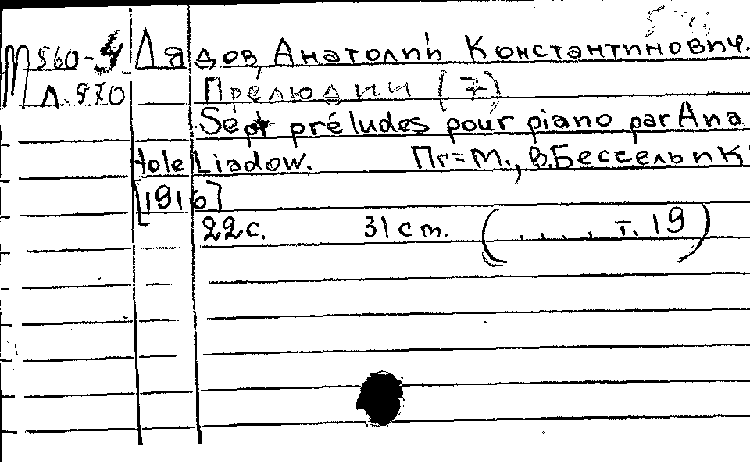 М560-4 Лядов, Анатолий Константинович.
Л.970 Прелюдии (7)
Sept préludes pour piano par Ana
tole Liadow. Пг=М., В.Бессель и К
[1916]
22 с. 31 cm. (.... т. 19)